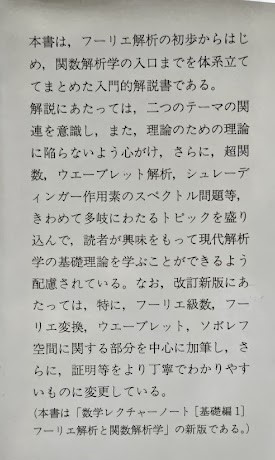 本書は，フーリエ解析の初歩からはじ
め，関数解析学の入口までを体系立て
てまとめた入門的解説書である。
解説にあたっては，二つのテーマの関
連を意識し，また，理論のための理論
に陥らないよう心がけ，さらに，超関
数，ウエーブレット解析，シュレーデ
ィンガー作用素のスペクトル問題等，
きわめて多岐にわたるトピックを盛り
込んで，読者が興味をもって現代解析
学の基礎理論を学ぶことができるよう
配慮されている。なお，改訂新版にあ
たっては，特に，フーリエ級数，フー
リエ変換，ウエーブレット，ソボレフ
空間に関する部分を中心に加筆し，さ
らに，証明等をより丁寧でわかりやす
いものに変更している。
（本書は「数学レクチャーノート［基礎編1］
フーリエ解析と関数解析学」の新版である。）